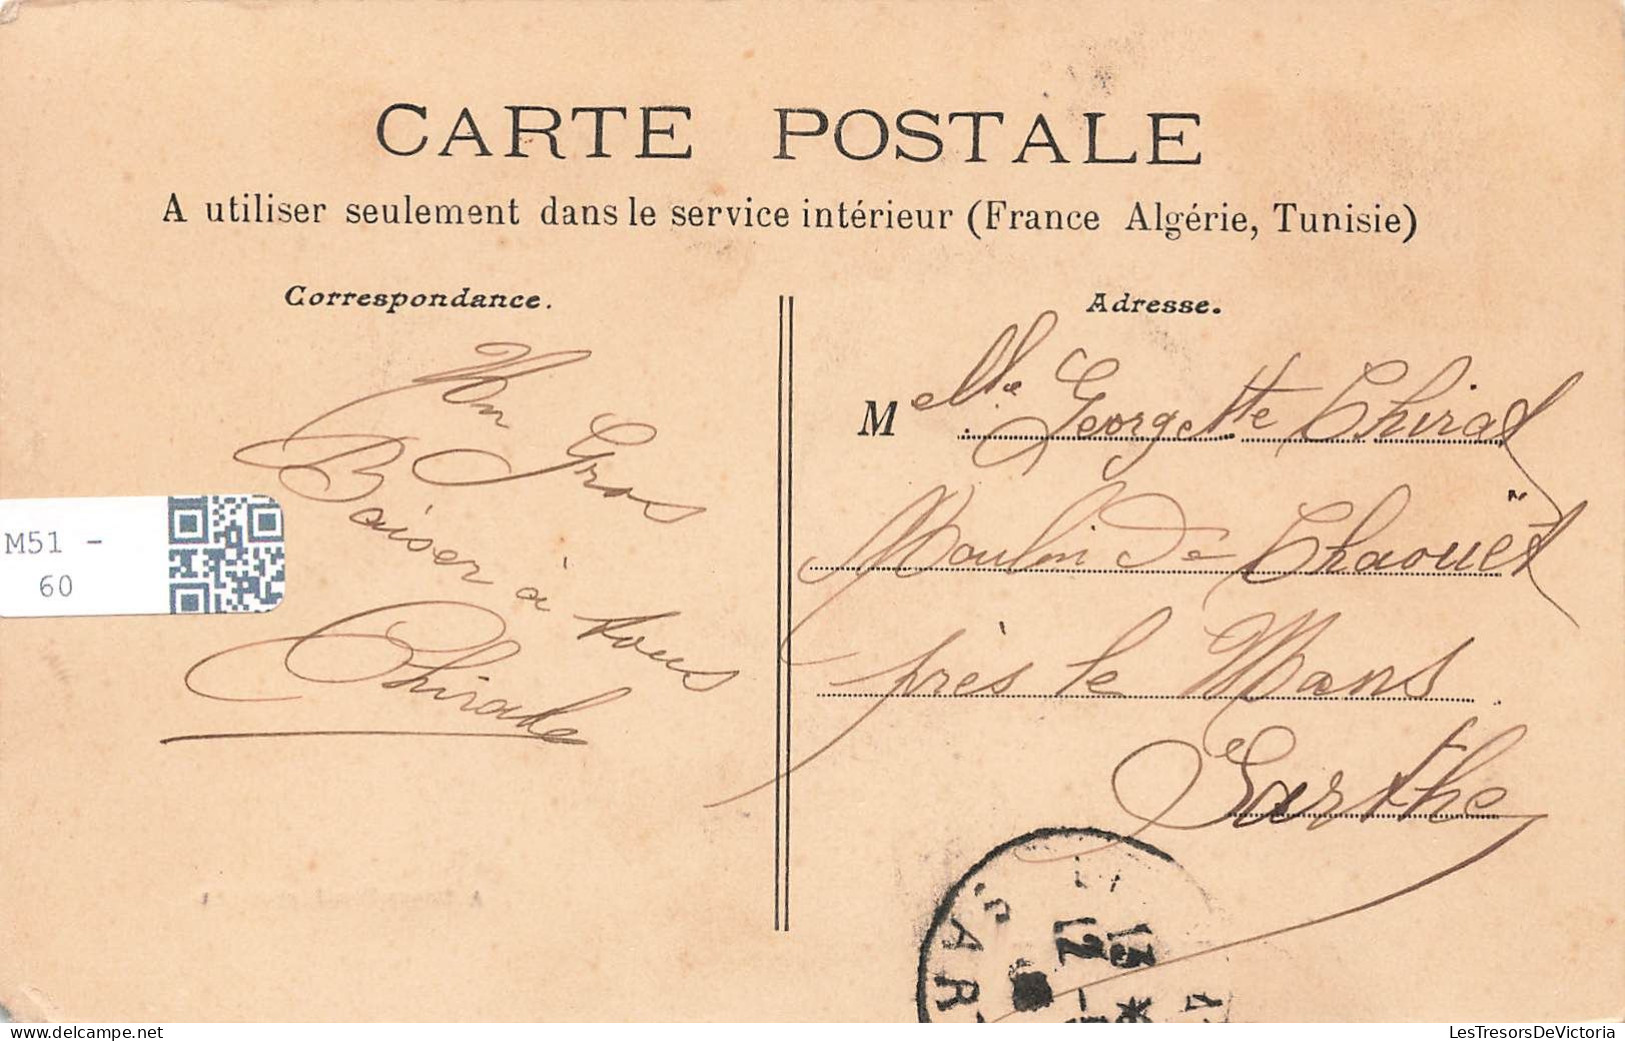 CARTE POSTALE
A utiliser seulement dans le service intérieur (France Algérie, Tunisie)
Correspondance.
Un Gros
Baiser à tous
Adresse.
Melle Georgette Chiral
Moulin De Chaouët
près le Mans
Sarthe
M51 -
60
SAR
13
12
LesTresorsDeVictoria